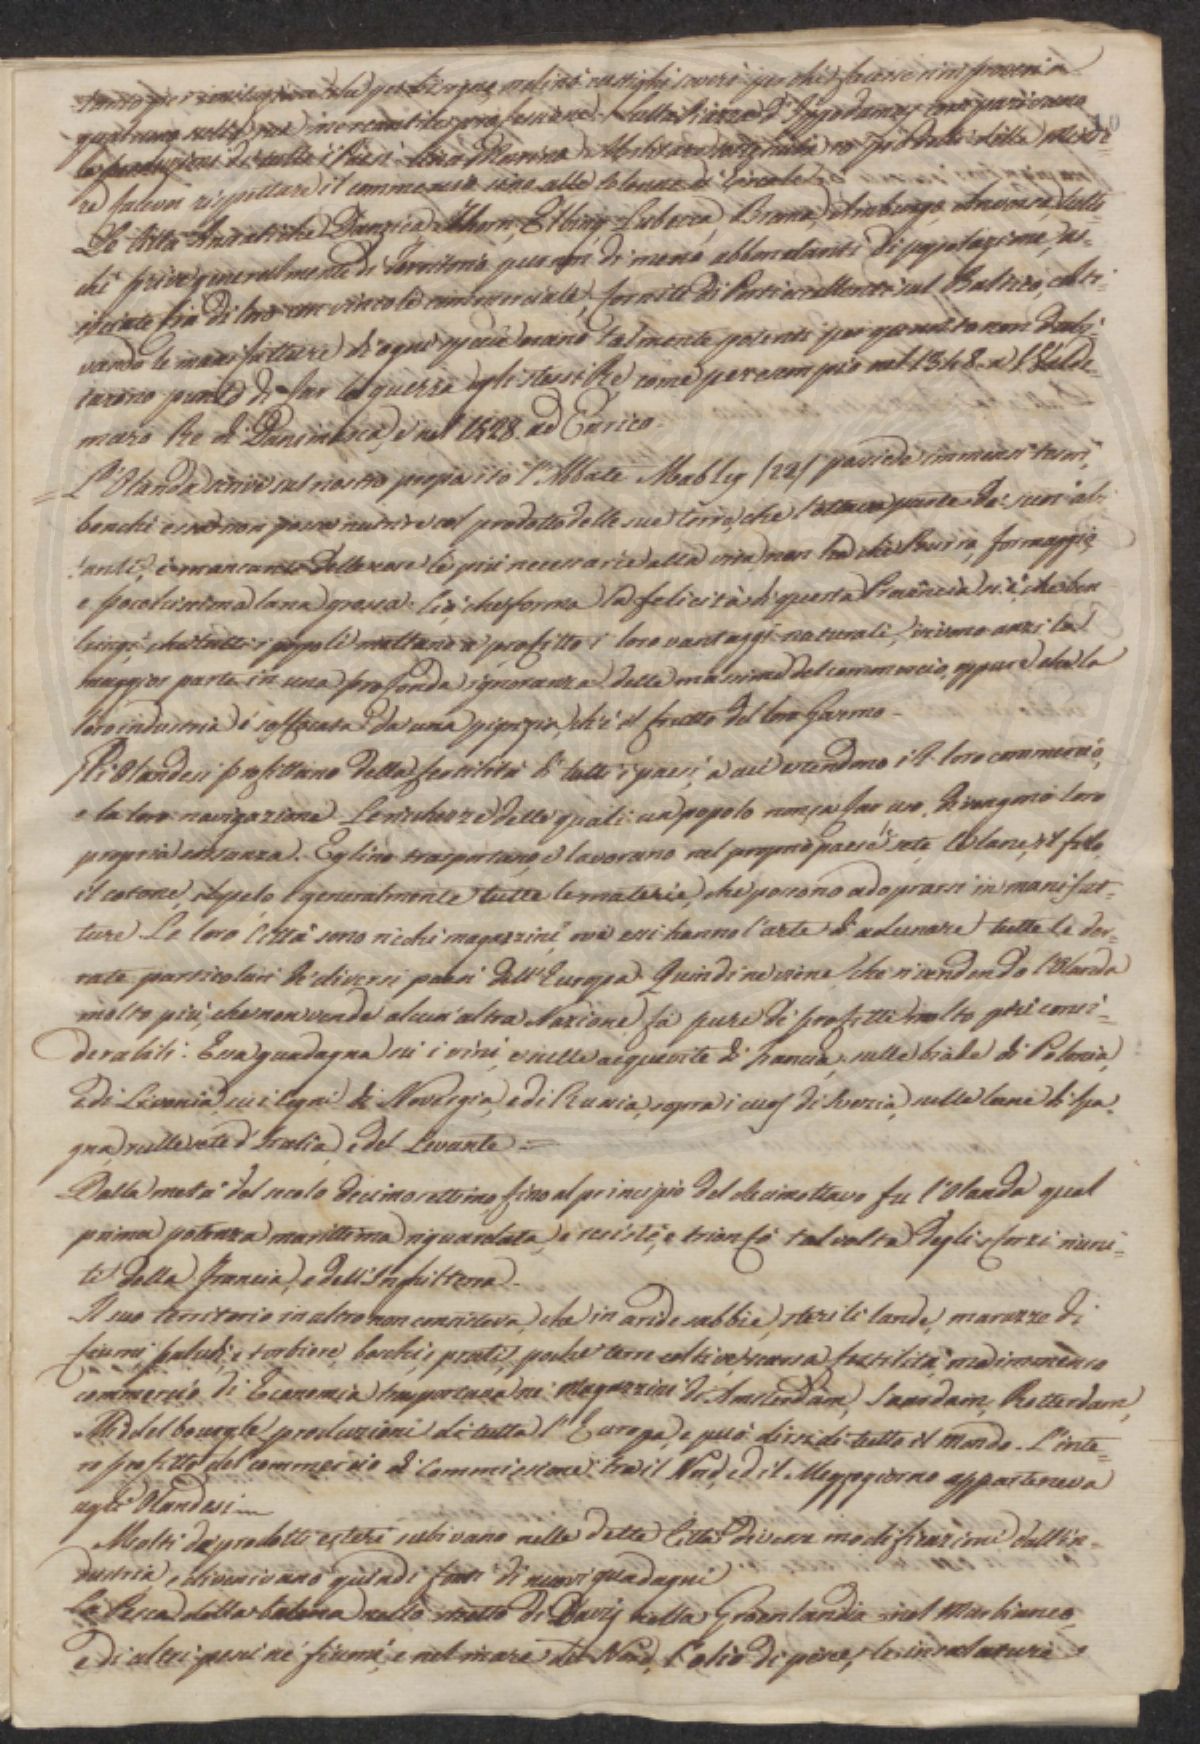 qualcuno sulla sua mercantile professione. Sulla Piazza d'Ippodamus comparivano
10
le produzioni di tutti i Paesi
re faceva rispettare il commercio sino alle colonne di Ercole.
Le Città Anseatiche Danzica, Thorn, Elbing, Lubecca, Brema, Amburgo, Anversa, tutte
che prive generalmente di Territorio, pur non di meno abbondanti di popolazione, as=
sociate fra di loro con vincolo commerciale, fornite di Porti eccellenti sul Baltico, colti=
vando le manifatture di ogni specie erano talmente potenti per quanto non dubi=
tarono punto di far la guerra agli stessi Re come per esempio nel 1348. a Valde=
maro Re di Danimarca, e nel 1428. ad Enrico.
= L'Olanda scrive sul nostro proposito l'Abate Mably /22/ possiede immensi tesori,
benchè essa non possa nutrire col prodotto delle sue terre, che l'ottava parte de' suoi abi
tanti, è mancante delle cose le più necessarie alla vita, non ha che Burro, formaggio,
e pochissima lana grossa. Ciò che forma la felicità di questa Provincia si è, che ben
lungi, che tutti i popoli mettano a profitto i loro vantaggi naturali, vivono anzi la
maggior parte in una profonda ignoranza delle massime del commercio, oppure che la
loro industria è soffocata da una pigrizia, ch'è il frutto del loro Governo.
Gli Olandesi profittano della fertilità di tutti i paesi, a cui estendono il loro commercio,
e la loro navigazione. Le ricchezze delle quali un popolo non sa far uso, divengono loro
propria sostanza. Eglino trasportano, e lavorano nel proprio paese le sete, le lane, il filo,
il cotone, il pelo, e generalmente tutte le materie, che possono adoprarsi in manifat=
ture. Le loro Città sono ricchi magazzini, ove essi hanno l'arte di adunare tutte le der=
rate particolari di diversi paesi dell'Europa. Quindi ne viene, che rivendendo l'Olanda
molto più, che non vende alcun'altra Nazione, fa pure di profitti molto più consi=
derabili. Essa guadagna su i vini, e sulle acquavite di Francia, sulle biade di Polonia,
e di Livonia, su i legni di Norvegia, e di Russia, sopra i cuoj di Svezia, sulle lane di Spa=
gna, sulle sete d'Italia, e del Levante =
Dalla metà del secolo decimosettimo, fino al principio del decimottavo fu l'Olanda qual
prima potenza marittima riguardata, e resistè, e trionfò talvolta degli sforzi riuni=
ti della Francia, e dell'Inghilterra.
Il suo territorio in altro non consisteva, che in aride sabbie, sterili lande, marazzo di
fiumi, paludi, e torbiere, boschi, e prati, poche terre coltive, scarsa fertilità, ma immenso
commercio di Economia trasportava ne' Magazzini di Amsterdam, Saardam, Rotterdam,
Middelbourgh le produzioni di tutta l'Europa, e può dirsi di tutto il Mondo. L'inte=
ro profitto del commercio di Commissione tra il Nord, ed il Mezzogiorno apparteneva
agli Olandesi
Molti de' prodotti esteri subivano nelle dette Città diverse modificazioni dall'in=
dustria, e divenivano quindi fonti di nuovi guadagni
La Pesca della balena nello stretto di Davis nella Groenlandia, nel Mar bianco,
e di altri pesci ne' fiumi, e nel mare del Nord, l'olio di pesce, le insalature